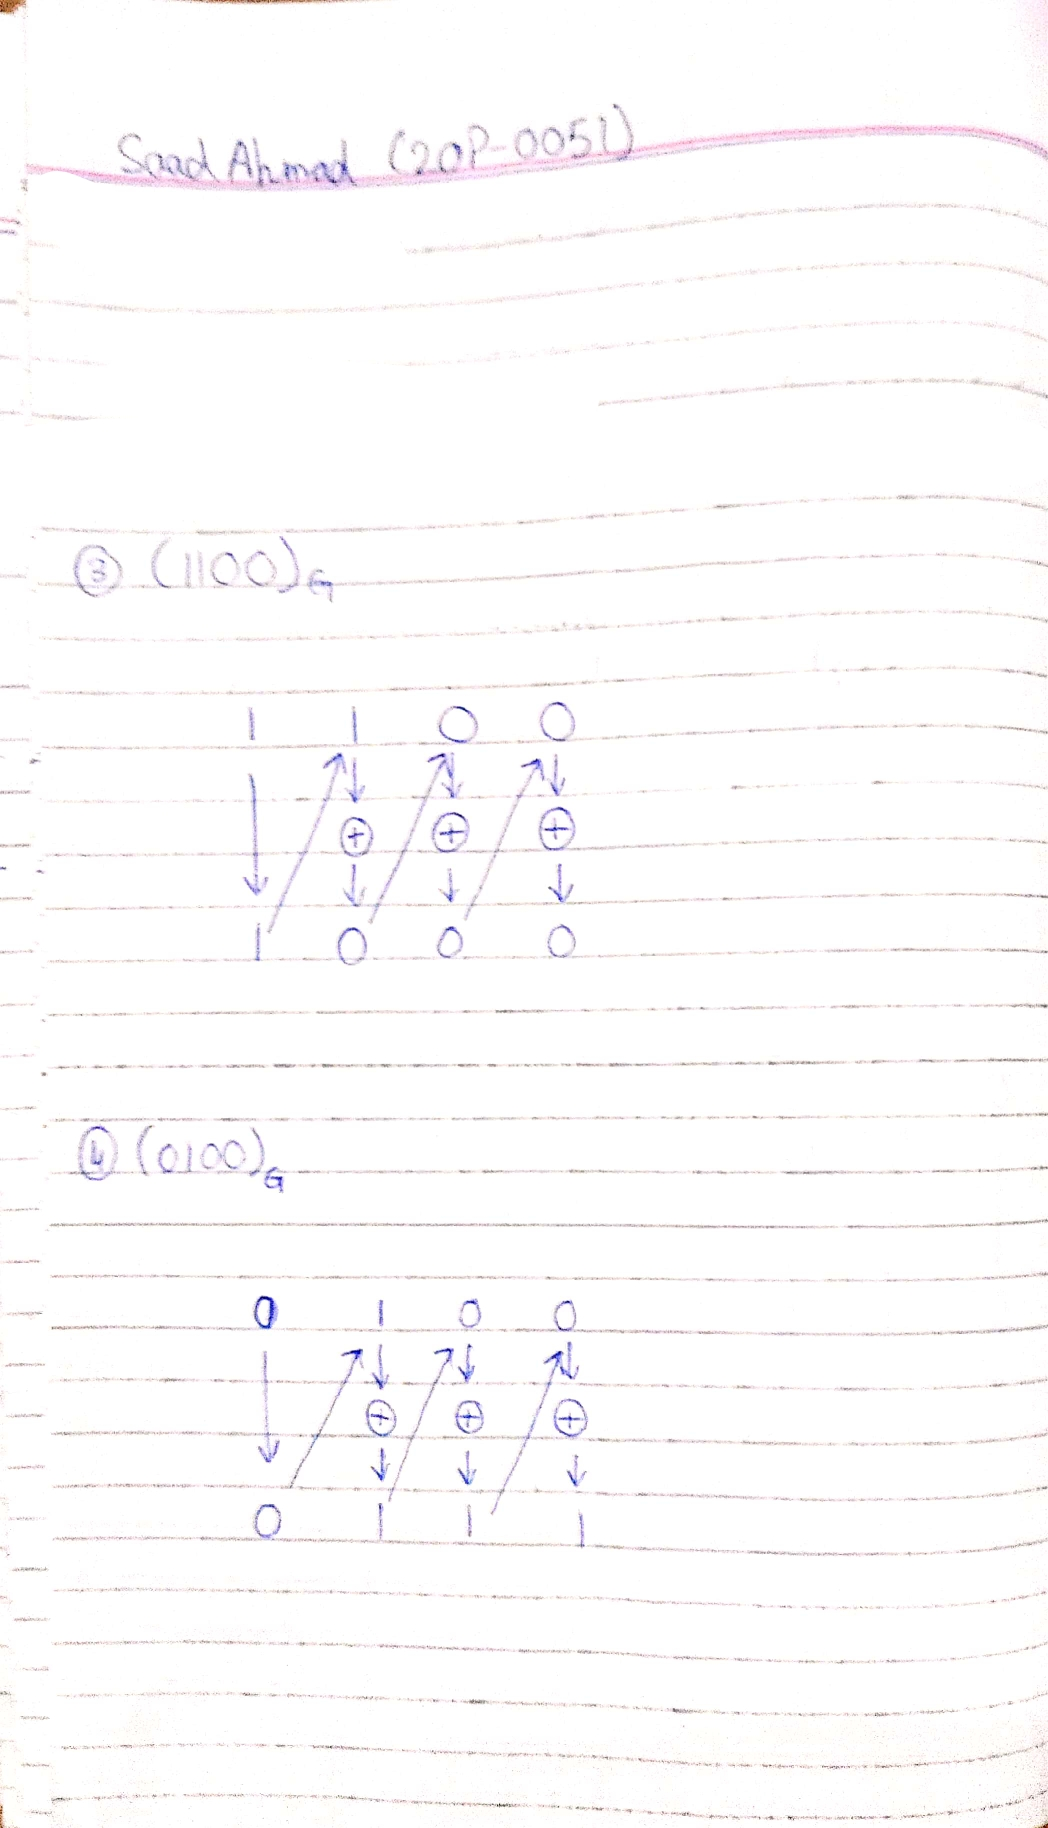 Saad Ahmad (20P-0051)
③ (1100)G
1 1 0 0
↓ ↓ ↓
⊕ ⊕ ⊕
↓ ↓ ↓ ↓
1 0 0 0
④ (0100)G
0 1 0 0
↓ ↓ ↓
⊕ ⊕ ⊕
↓ ↓ ↓ ↓
0 1 1 1